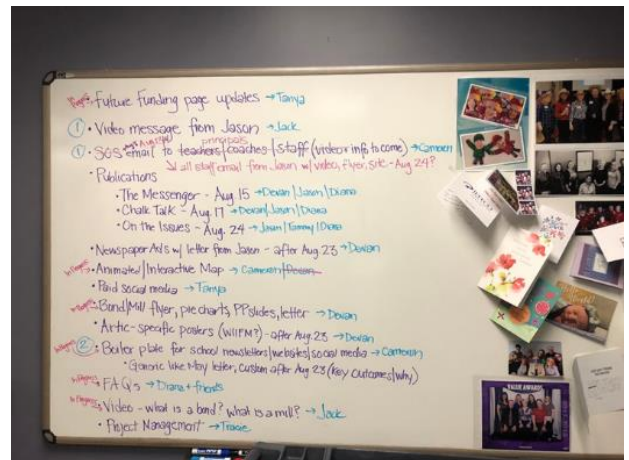 • Future Funding page updates → Tanya
① • Video message from Jason → Jack
principals
① • SOS email to teachers/coaches/staff (video & info to come) → Cameron
↳ all staff email from Jason w/ video, flyer, site - Aug 24?
• Publications
• The Messenger - Aug. 15 → Devan/Jason/Diana
• Chalk Talk - Aug. 17 → Devan/Jason/Diana
• On the Issues - Aug. 24 → Jason/Tammy/Diana
• Newspaper Ads w/ letter from Jason - after Aug. 23 → Devan
In Progress • Animated/Interactive Map → Cameron/Devan
• Paid social media → Tanya
In Progress • Bond/Mill flyer, pie charts, PPslides, letter → Devan
• Artic-specific posters (WIIFM?) - after Aug. 23 → Devan
In Progress ② • Boiler plate for school newsletters/websites/social media → Cameron
• Generic like May letter, custom after Aug 23 (key outcomes/why)
In Progress • FAQs → Diana + friends
In Progress • Video - what is a bond? what is a mill? → Jack
• Project Management → Tracie
VALUE AWARDS